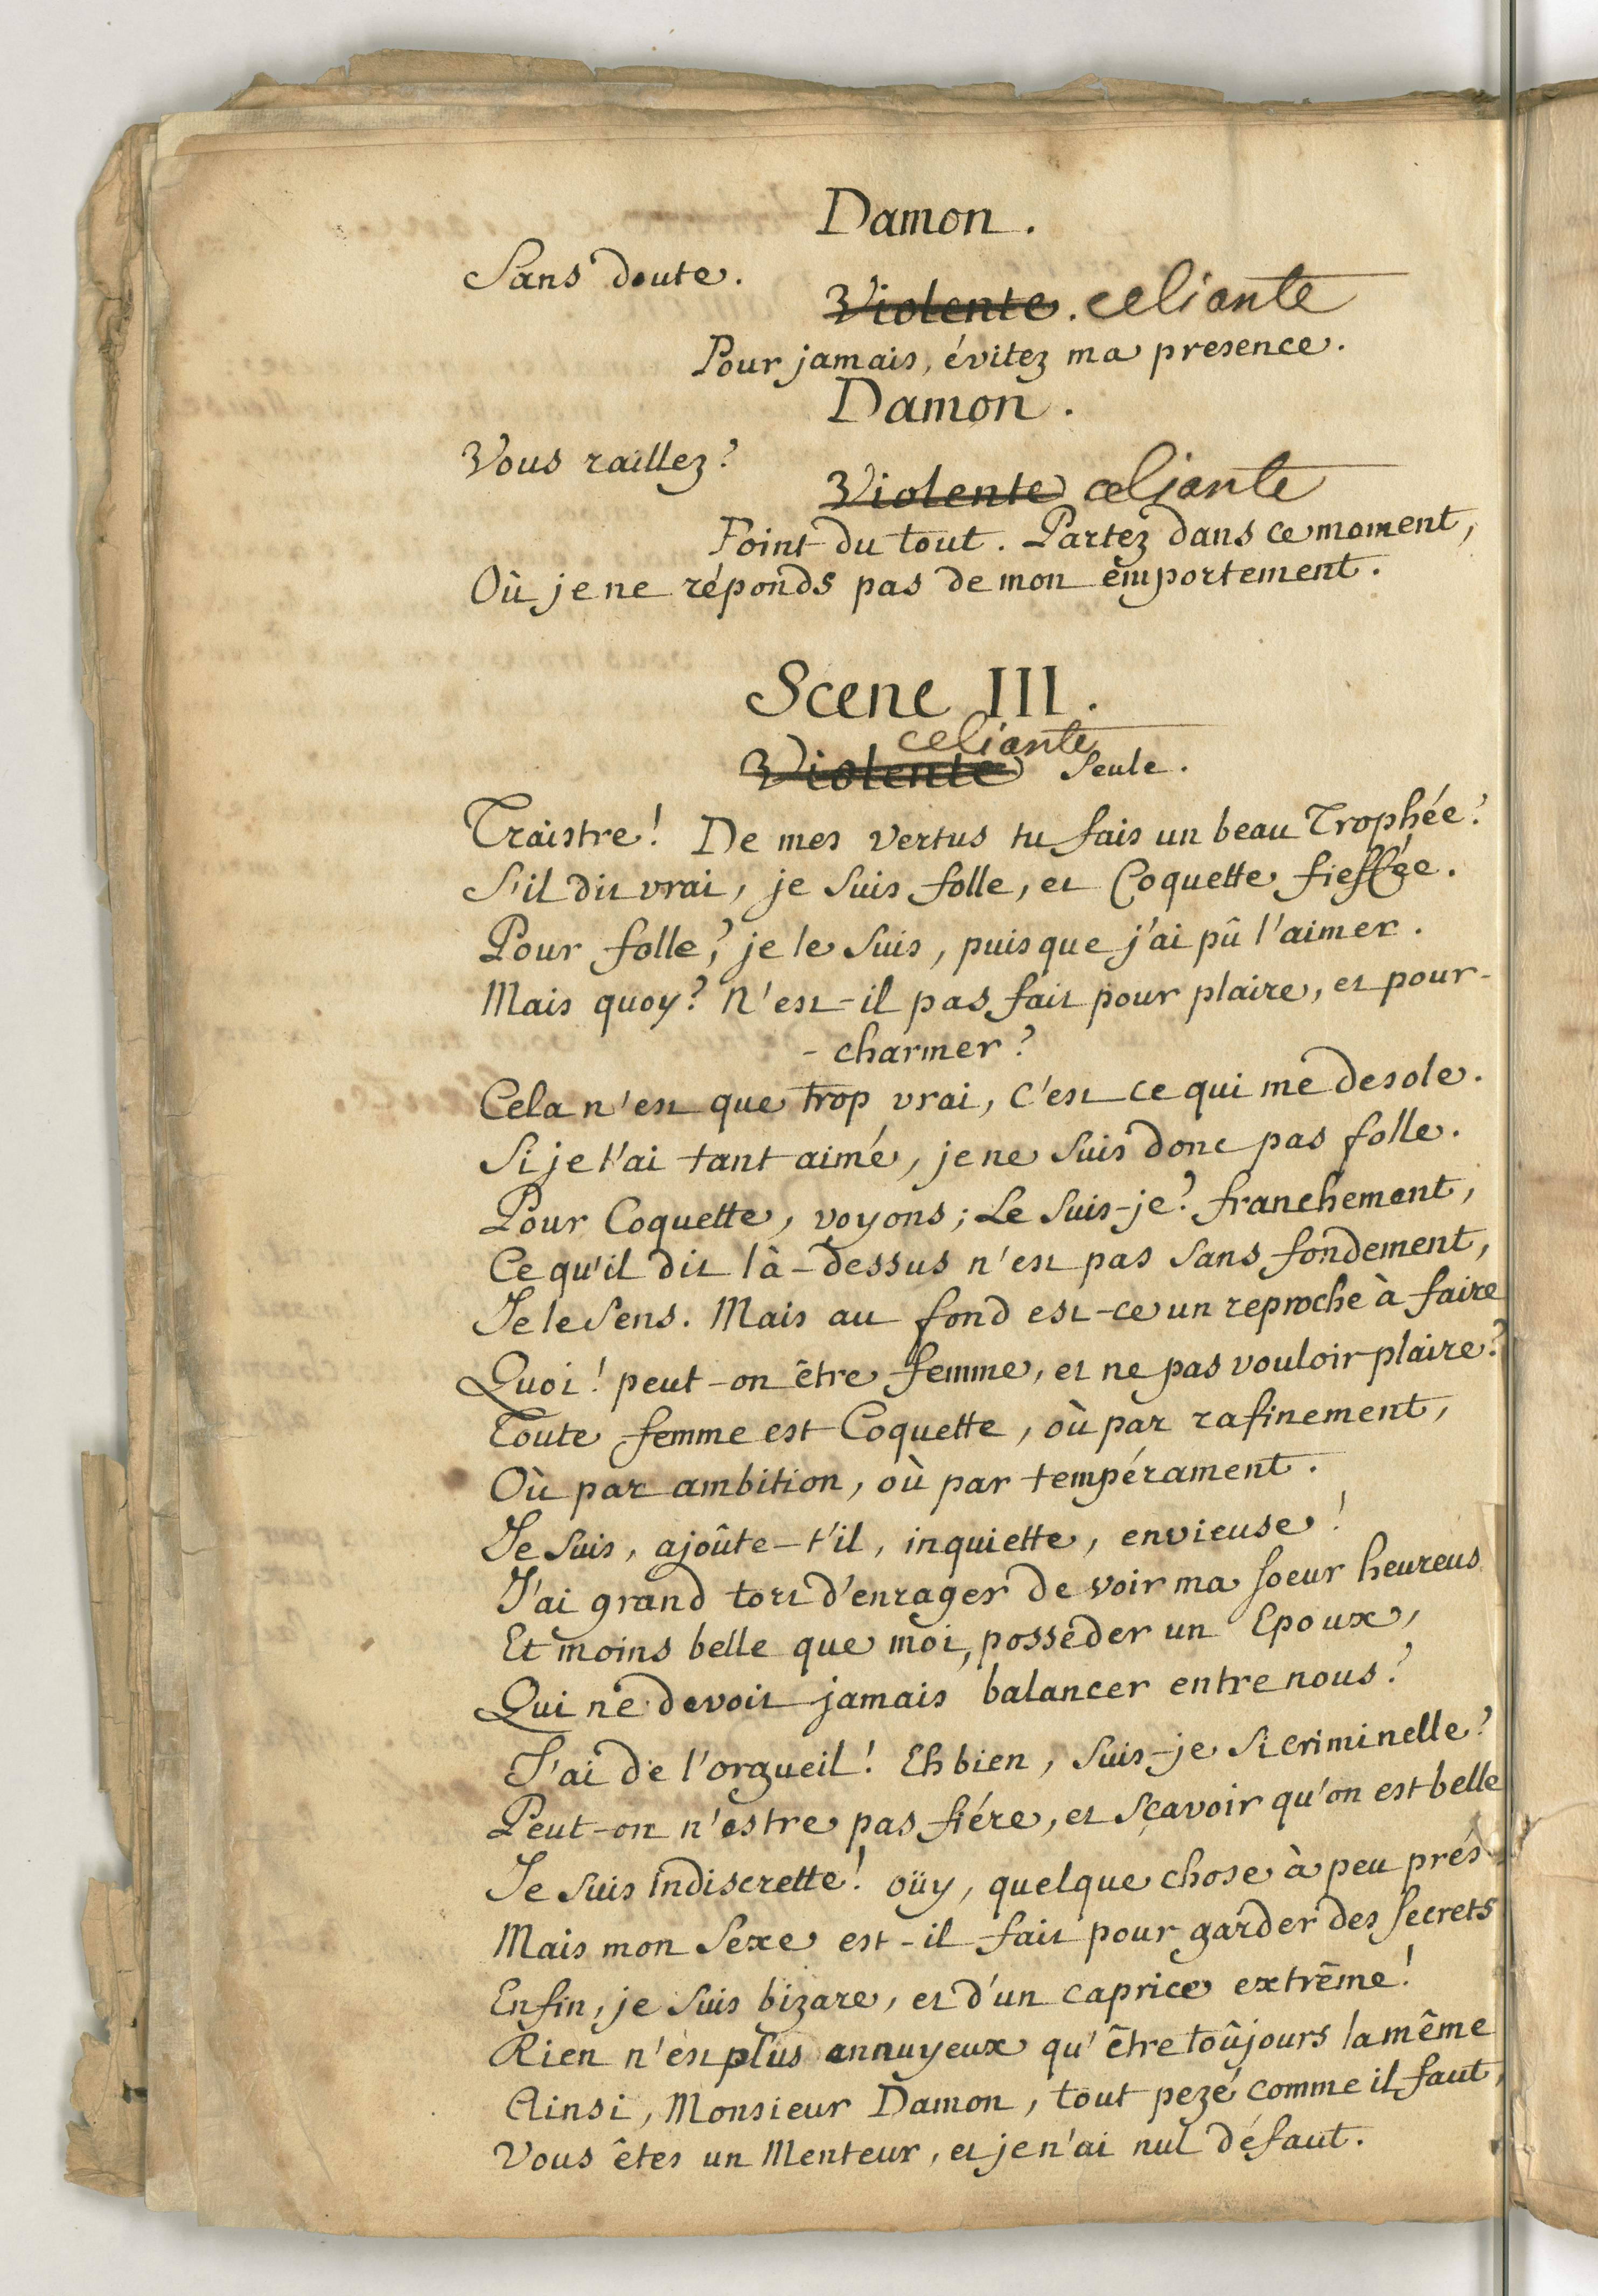 Damon.
Sans doute.
Violente. celiante
Pour jamais, évitez ma presence.
Damon.
Vous raillez?
Violente celiante
Point du tout. Partez dans ce moment,
Où je ne réponds pas de mon emportement.
Scene III.
celiante
Violente Seule.
Traistre! De mes vertus tu fais un beau Trophée?
S'il dit vrai, je suis folle, et Coquette fieffée.
Pour folle? je le suis, puisque j'ai pû l'aimer.
Mais quoy? N'est-il pas fait pour plaire, et pour-
- charmer?
Cela n'est que trop vrai, C'est ce qui me desole.
Si je l'ai tant aimé, je ne suis donc pas folle.
Pour Coquette, voyons; Le suis-je? franchement,
Ce qu'il dit là-dessus n'est pas sans fondement,
Je le sens. Mais au fond est-ce un reproche à faire
Quoi! peut-on être femme, et ne pas vouloir plaire?
Toute femme est Coquette, où par rafinement,
Où par ambition, où par tempérament.
Je suis, ajoûte-t'il, inquiette, envieuse!
J'ai grand tort d'enrager de voir ma soeur heureus
Et moins belle que moi, posséder un Epoux,
Qui ne devoit jamais balancer entre nous?
J'ai de l'orgueil! Eh bien, suis-je si criminelle?
Peut-on n'estre pas fiére, et sçavoir qu'on est belle
Je suis indiscrette! oüy, quelque chose à peu prés
Mais mon Sexe est-il fait pour garder des secrets
Enfin, je suis bizare, et d'un caprice extrême!
Rien n'est plus annuyeux qu'être toûjours la même
Ainsi, Monsieur Damon, tout pezé comme il faut,
Vous êtes un Menteur, et je n'ai nul défaut.